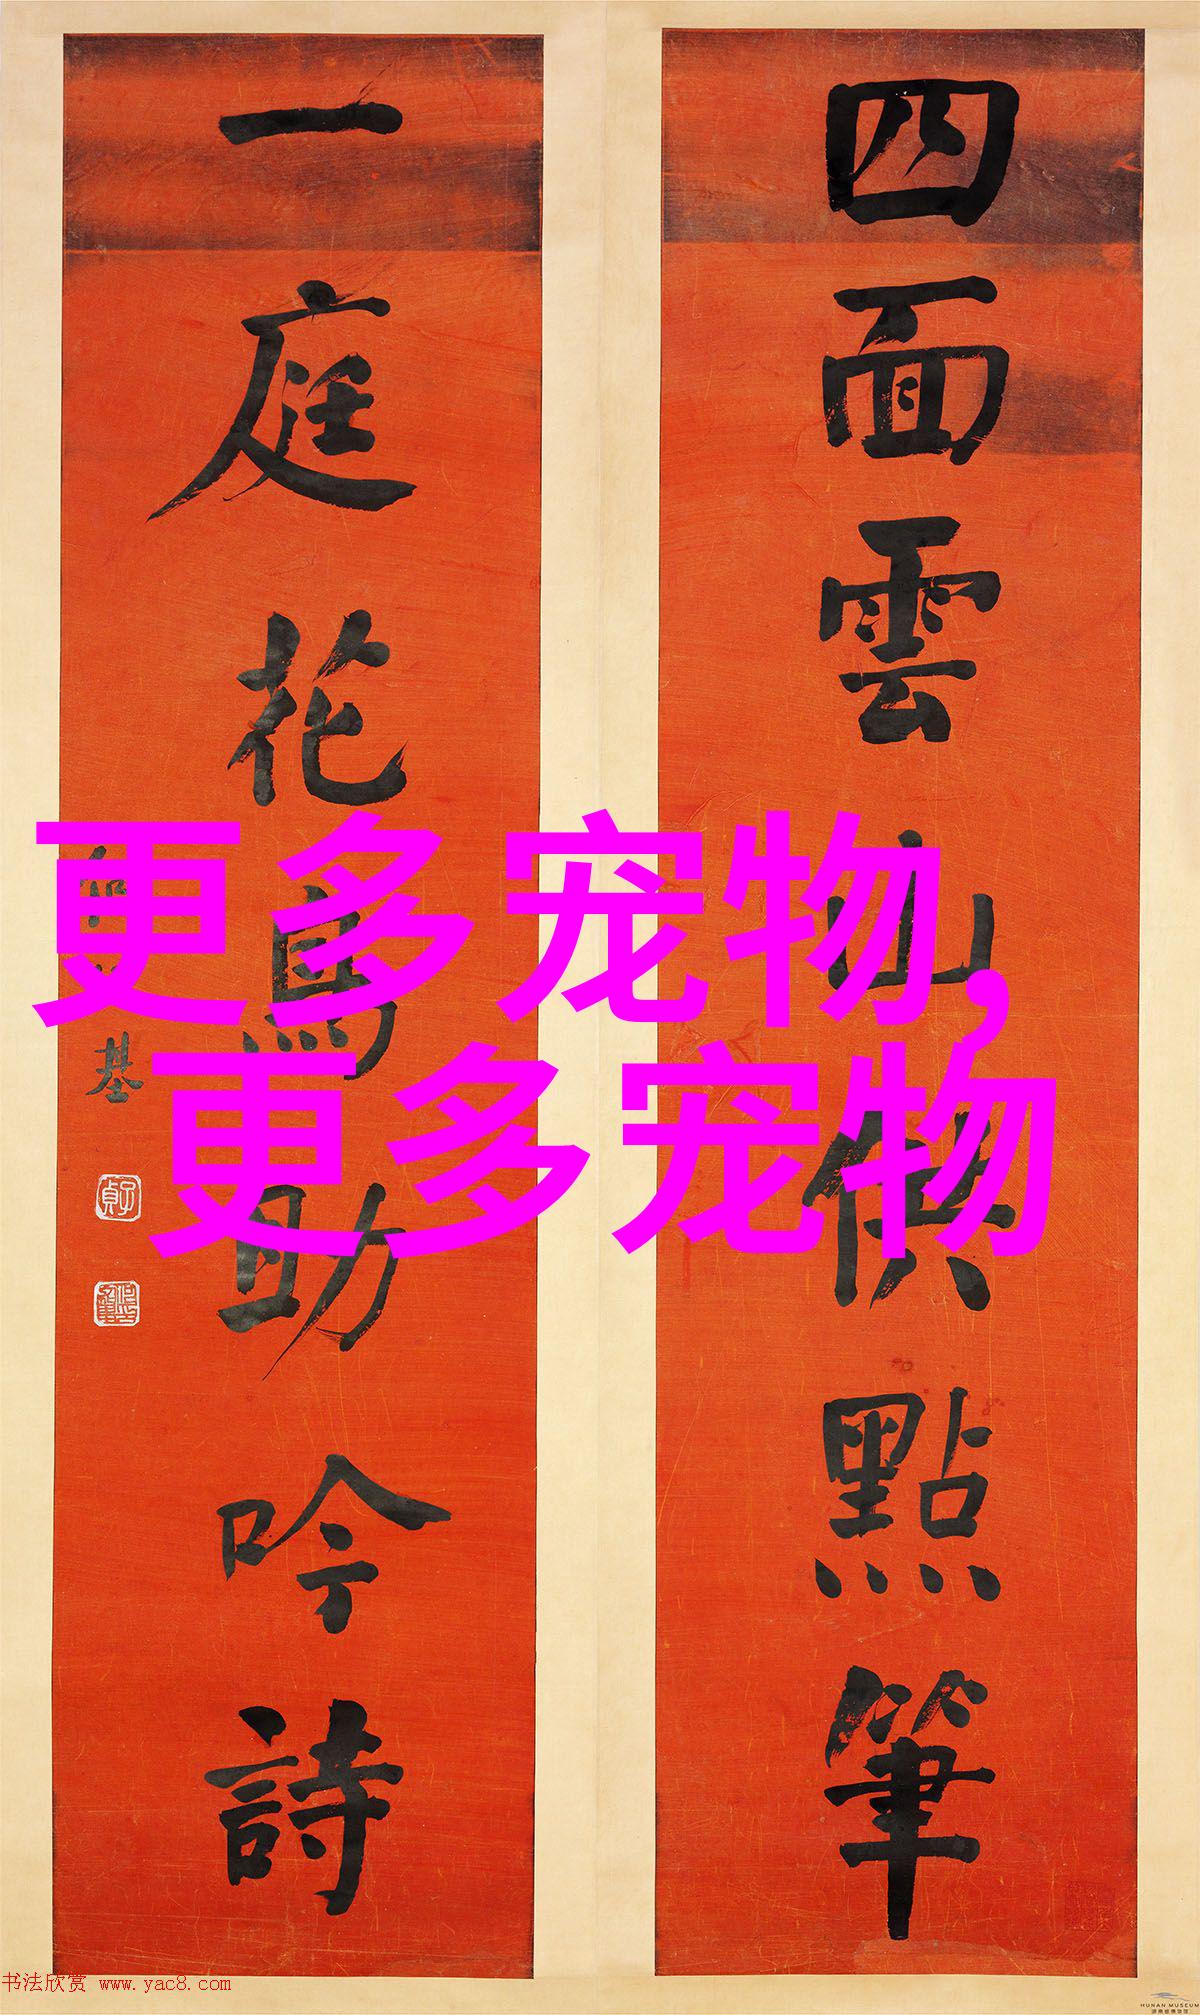 四面雲山供點筆
一庭花鳥助吟詩
基
更多宠物,
更多宠物
书法欣赏 www.yac8.com
HUNAN MUSEUM